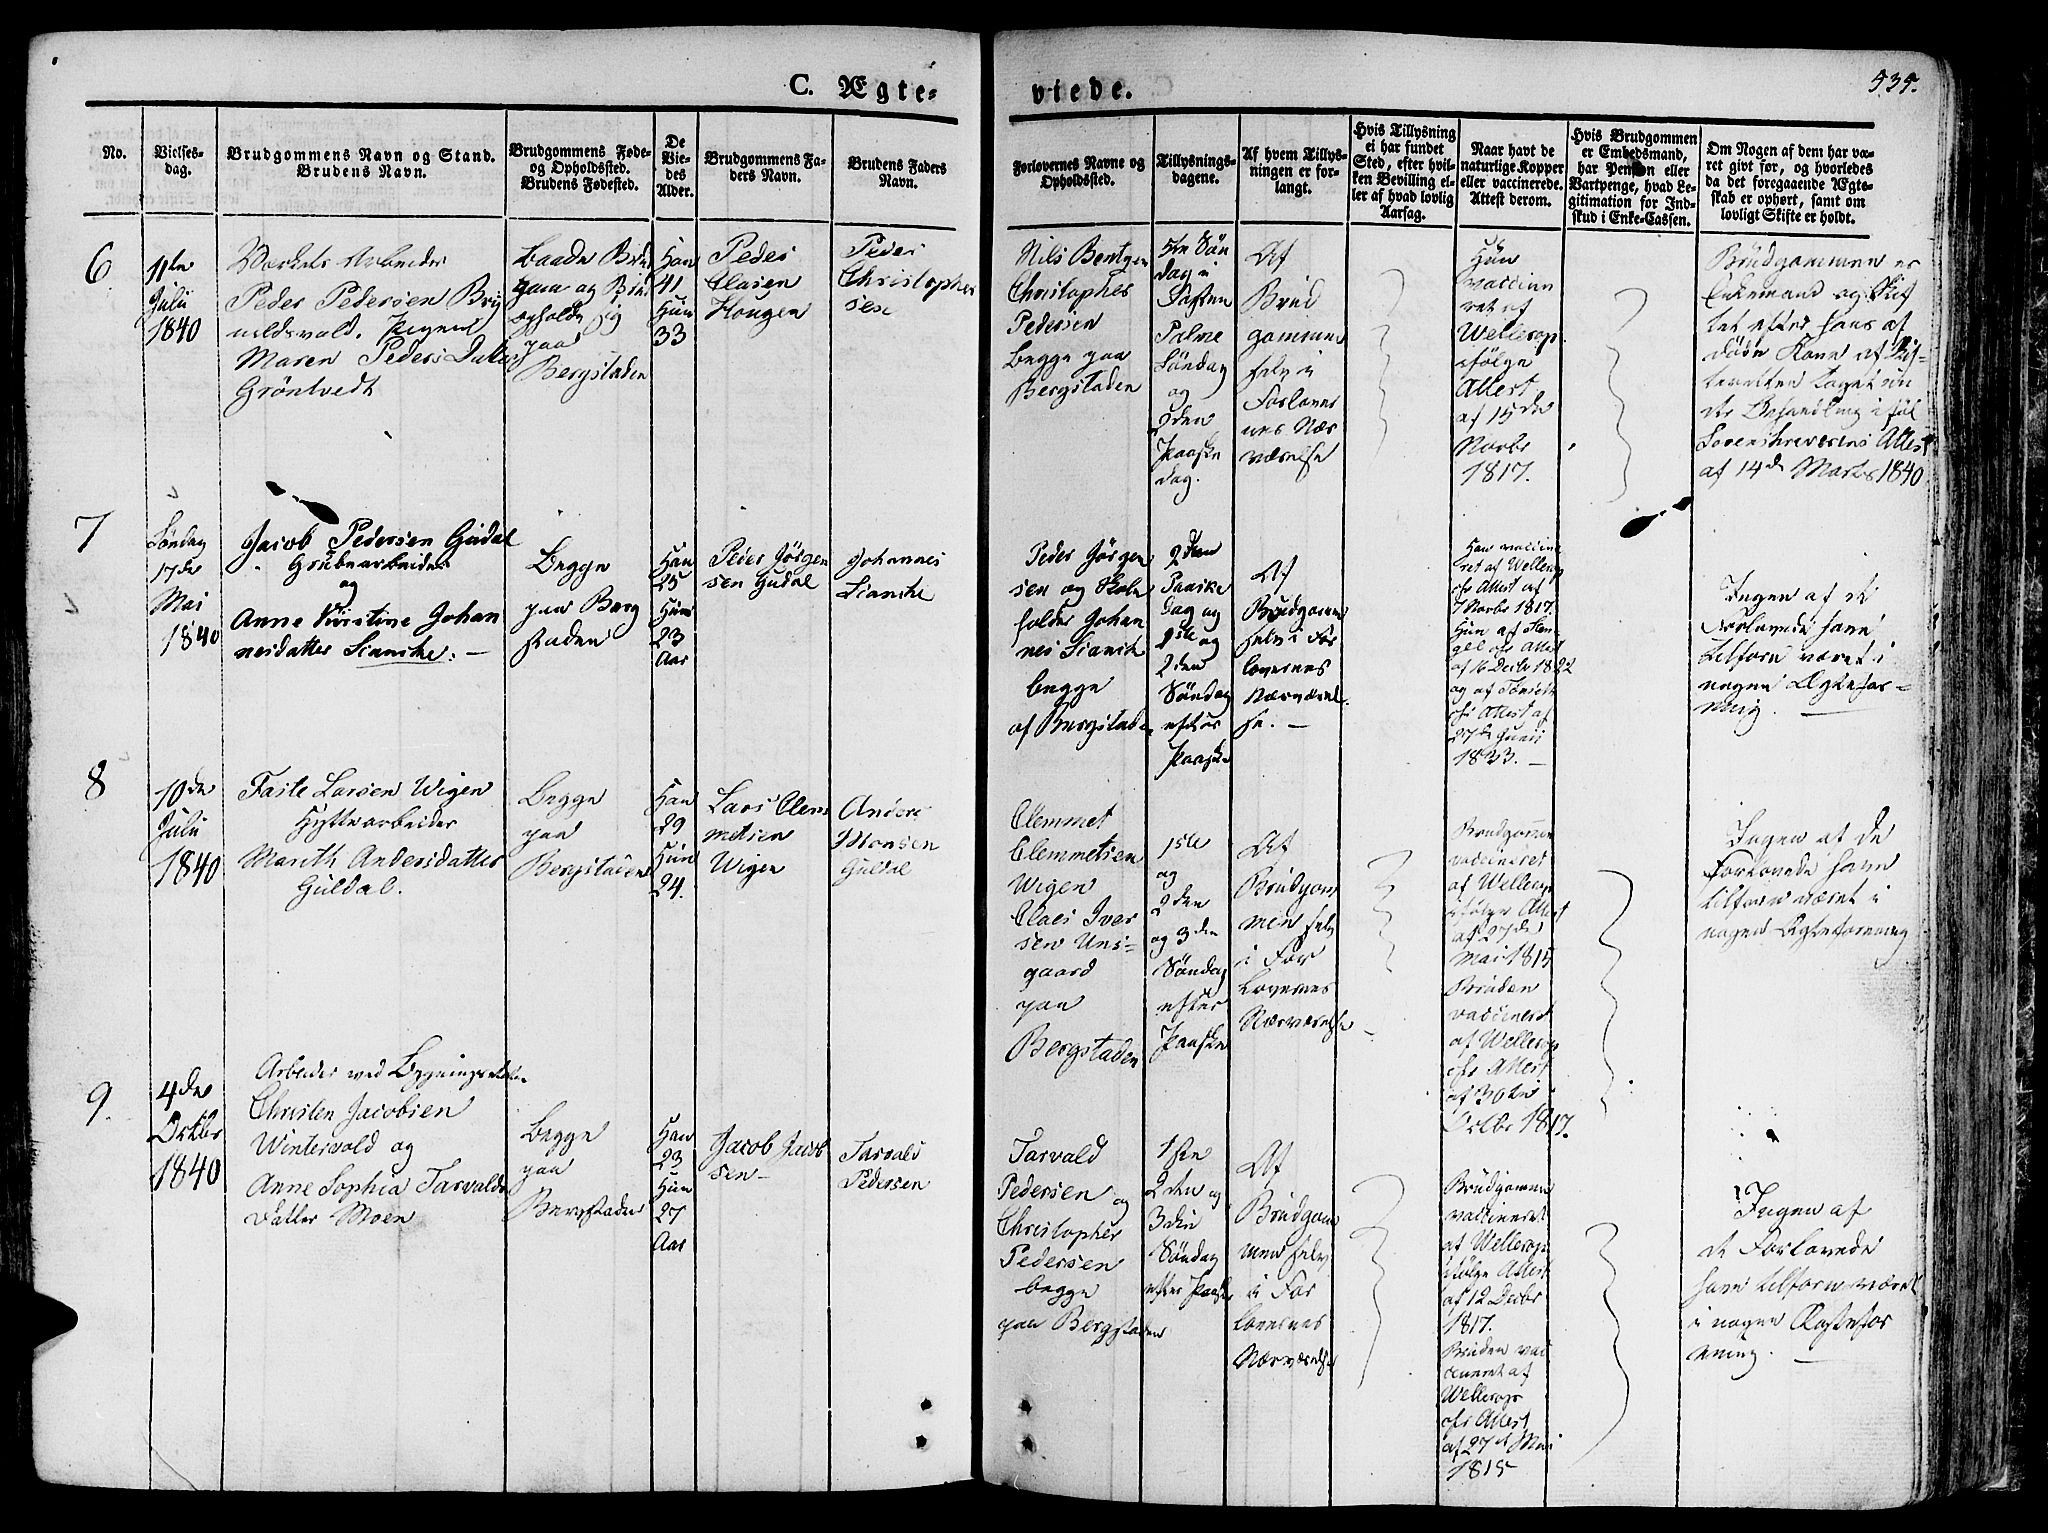 C. Ægte-
viede.
535.
No.
Vielses-
dag.
Brudgommens Navn og Stand.
Brudens Navn.
Brudgommens Føde-
og Opholdssted.
Brudens Fødested.
De
Vie-
des
Alder.
Brudgommens Fa-
ders Navn.
Brudens Faders
Navn.
Forlovernes Navne og
Opholdssted.
Tillysnings-
dagene.
Af hvem Tillys-
ningen er for-
langt.
Hvis Tillysning
ei har fundet
Sted, efter hvil-
ken Bevilling el-
ler af hvad lovlig
Aarsag.
Naar havt de
naturlige Kopper
eller vaccinerede.
Attest derom.
Hvis Brudgommen
er Embedsmand,
har Pension eller
Vartpenge, hvad Le-
gitimation for Ind-
skud i Enke-Cassen.
Om Nogen af dem har væ-
ret givt før, og hvorledes
da det foregaaende Ægte-
skab er ophørt, samt om
lovligt Skifte er holdt.
6
11te
Juli
1840
Værkets Arbeider
Peder Pedersen Bry
nildsvold. Pigen
Maren Peders Datter
Grøntvedt
Baade Brud
gom og Brud
opholde sig
paa
Bergstaden
Han
41
Hun
33
Peder
Clasen
Hougen
Peder
Christopher
sen
Nils Bentzen
Christopher
Pedersen
begge paa
Bergstaden
5te Søn
dag i
Fasten
Palme
Søndag
og
2den
Paaske
dag.
Af
Brud
gommen
selv i
Forlover
nes Nær
værelse
Hun
vaccine
ret af
Wellerop
ifølge
Attest
af 15de
Novbr
1817.
Brudgommen er
Enkemand og Skif
tet efter hans af
døde Kone af Skif-
teretten taget un
der Behandling iføl
Sorenskriverens Attest
af 14d Marts 1840
7
Søndag
17de
Mai
1840
Jacob Pedersen Guldal
Grubearbeider
og
Anne Kirstine Johan
nesdatter Sianske. -
Begge
paa Berg
staden
Han
25
Hun
23
Aar
Peder Jørgen
sen Guldal
Johannes
Sianske
Peder Jørgen
sen og Skole
holder Johan
nes Sianske
begge
af Bergstaden
2den
Paaske
dag og
1ste og
2den
Søndag
efter
Paaske
Af
Brudgommen
selv i For
lovernes
Nærværel
se. -
Han vaccine
ret af Wellerop
ifr Attest af
7 Novbr 1817.
Hun af Sten
gel ifr Attest
af 16 Decbr 1822
og af
ifr Attest af
27de Juni
1823. -
Ingen af de
Forlovede have
tilforn været i
nogen Ægtefor-
ning.
8
10de
Juli
1840
Faste Larsen Wigen
Hyttearbeider
Marith Andersdatter
Guldal.
Begge
paa
Bergstaden
Han
29
Hun
24.
Lars Clem
metsen
Wigen
Anders
Monsen
Guldal
Clemmet
Clemmetsen
Wigen
Claes Iver
sen Uns-
gaard
paa
Bergstaden
1ste
og
2den
og 3den
Søndag
efter
Paaske
Af
Brudgom
men selv
i For
lovernes
Nærværelse
Brudgommen
vaccineret
af Wellerop
ifølge Attest
af 27de
Mai 1815
Bruden
vaccineret
af Wellerop
ifr Attest
af 30te
Octbr 1817.
Ingen af de
Forlovede have
tilforn været i
nogen Ægteforening
9.
4de
Octbr
1840
Arbeider ved
Christen Jacobsen
Wintervold og
Anne Sophia Tarvalds
datter Moen
Begge
paa
Bergstaden
Han
23
Hun
27
Aar
Jacob Jacob
sen -
Tarvald
Pedersen
Tarvald
Pedersen og
Christopher
Pedersen
begge
paa Bergstaden
1ste
2den og
3die
Søndag
efter Paaske
Af
Brudgom
men selv
i For
lovernes
Nærværelse
Brudgommen
vaccineret
af Wellerop
ifølge Attest
af 12 Decbr
1817.
Bruden vac
cineret af
Wellerop
ifr Attest
af 27d Mai
1815
Ingen af
de Forlovede
have tilforn været
i nogen Ægtefor
ening.